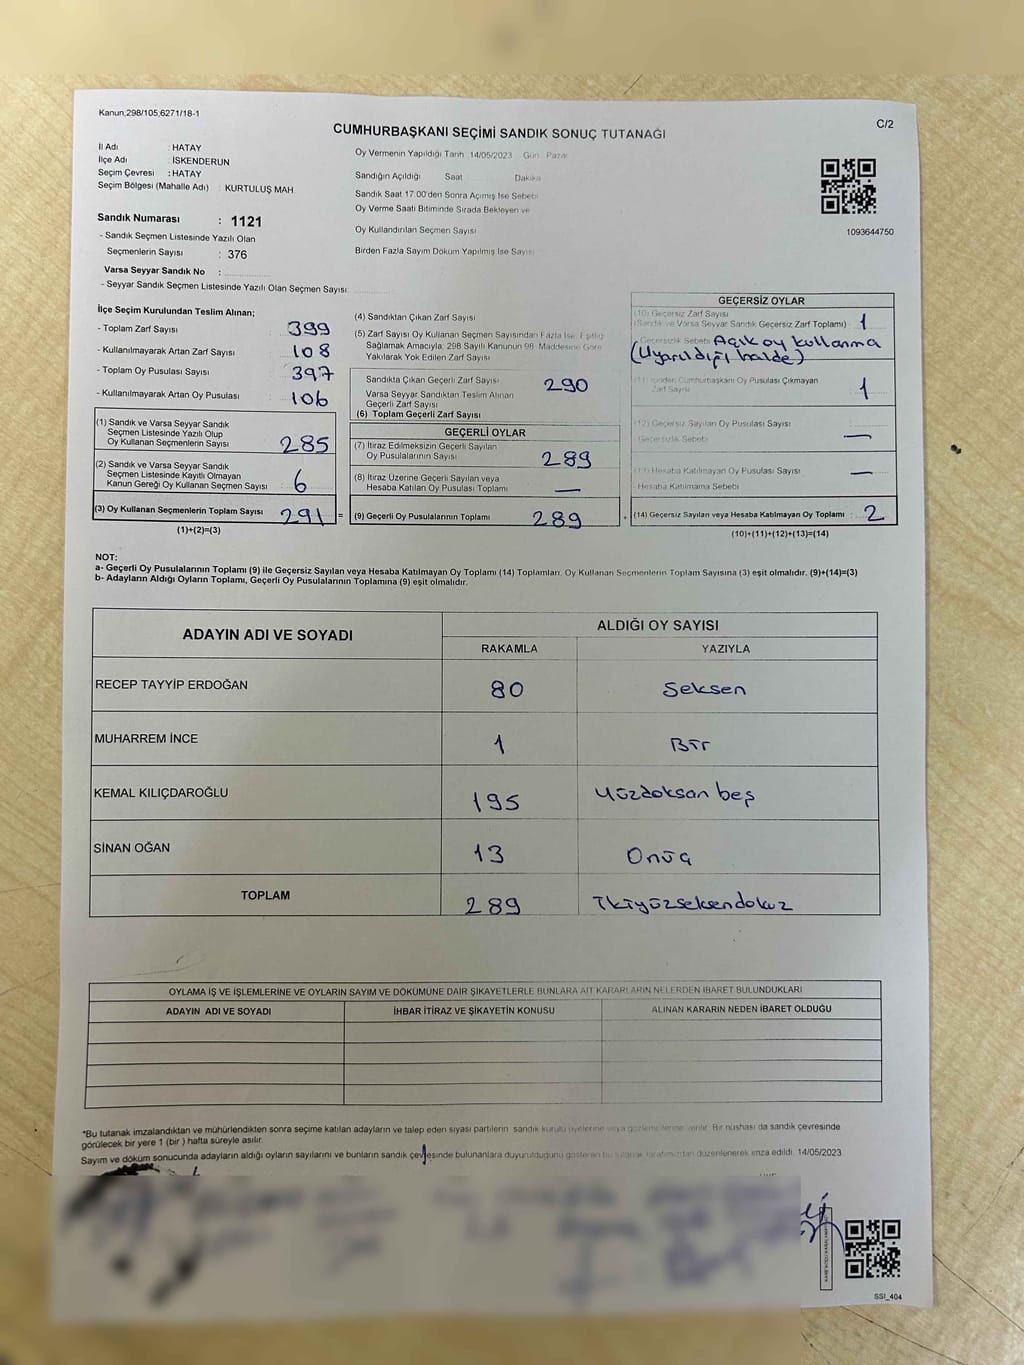 Kanun,298/105,6271/18-1
C/2
CUMHURBAŞKANI SEÇİMİ SANDIK SONUÇ TUTANAĞI
İl Adı : HATAY
İlçe Adı : İSKENDERUN
Seçim Çevresi : HATAY
Seçim Bölgesi (Mahalle Adı) : KURTULUŞ MAH.
Sandık Numarası : 1121
- Sandık Seçmen Listesinde Yazılı Olan
Seçmenlerin Sayısı : 376
Varsa Seyyar Sandık No :
- Seyyar Sandık Seçmen Listesinde Yazılı Olan Seçmen Sayısı:
Oy Vermenin Yapıldığı Tarih 14/05/2023 Gün Pazar
Sandığın Açıldığı Saat Dakika
Sandık Saat 17:00'den Sonra Açımış İse Sebebi
Oy Verme Saati Bitiminde Sırada Bekleyen ve
Oy Kullandırılan Seçmen Sayısı
Birden Fazla Sayım Döküm Yapılmış İse Sayısı
1093644750
İlçe Seçim Kurulundan Teslim Alınan;
- Toplam Zarf Sayısı 399
- Kullanılmayarak Artan Zarf Sayısı 108
- Toplam Oy Pusulası Sayısı 397
- Kullanılmayarak Artan Oy Pusulası 106
(1) Sandık ve Varsa Seyyar Sandık
Seçmen Listesinde Yazılı Olup
Oy Kullanan Seçmenlerin Sayısı 285
(2) Sandık ve Varsa Seyyar Sandık
Seçmen Listesinde Kayıtlı Olmayan
Kanun Gereği Oy Kullanan Seçmen Sayısı : 6
(3) Oy Kullanan Seçmenlerin Toplam Sayısı 291 =
(1)+(2)=(3)
(4) Sandıktan Çıkan Zarf Sayısı
(5) Zarf Sayısı Oy Kullanan Seçmen Sayısından Fazla İse, Eşitliği
Sağlamak Amacıyla, 298 Sayılı Kanunun 98. Maddesine Göre
Yakılarak Yok Edilen Zarf Sayısı
Sandıkta Çıkan Geçerli Zarf Sayısı 290
Varsa Seyyar Sandıktan Teslim Alınan
Geçerli Zarf Sayısı
(6) Toplam Geçerli Zarf Sayısı
GEÇERLİ OYLAR
(7) İtiraz Edilmeksizin Geçerli Sayılan
Oy Pusulalarının Sayısı 289
(8) İtiraz Üzerine Geçerli Sayılan veya
Hesaba Katılan Oy Pusulası Toplamı —
(9) Geçerli Oy Pusulalarının Toplamı 289 +
GEÇERSİZ OYLAR
(10) Geçersiz Zarf Sayısı
(Sandık ve Varsa Seyyar Sandık Geçersiz Zarf Toplamı) 1
Geçersizlik Sebebi Açık oy kullanma
(Uyarıldığı halde)
(11) İçinden Cumhurbaşkanı Oy Pusulası Çıkmayan
Zarf Sayısı 1
(12) Geçersiz Sayılan Oy Pusulası Sayısı
Geçersizlik Sebebi —
(13) Hesaba Katılmayan Oy Pusulası Sayısı —
Hesaba Katılmama Sebebi
(14) Geçersiz Sayılan veya Hesaba Katılmayan Oy Toplamı : 2
(10)+(11)+(12)+(13)=(14)
NOT:
a- Geçerli Oy Pusulalarının Toplamı (9) ile Geçersiz Sayılan veya Hesaba Katılmayan Oy Toplamı (14) Toplamları, Oy Kullanan Seçmenlerin Toplam Sayısına (3) eşit olmalıdır. (9)+(14)=(3)
b- Adayların Aldığı Oyların Toplamı, Geçerli Oy Pusulalarının Toplamına (9) eşit olmalıdır.
ADAYIN ADI VE SOYADI ALDIĞI OY SAYISI
RAKAMLA YAZIYLA
RECEP TAYYİP ERDOĞAN 80 Seksen
MUHARREM İNCE 1 Bir
KEMAL KILIÇDAROĞLU 195 Yüzdoksan beş
SİNAN OĞAN 13 Onüç
TOPLAM 289 İkiyüzseksendokuz
OYLAMA İŞ VE İŞLEMLERİNE VE OYLARIN SAYIM VE DÖKÜMÜNE DAİR ŞİKAYETLERLE BUNLARA AİT KARARLARIN NELERDEN İBARET BULUNDUKLARI
ADAYIN ADI VE SOYADI İHBAR İTİRAZ VE ŞİKAYETİN KONUSU ALINAN KARARIN NEDEN İBARET OLDUĞU
*Bu tutanak imzalandıktan ve mühürlendikten sonra seçime katılan adayların ve talep eden siyasi partilerin sandık kurulu üyelerine veya gözlemcilerine verilir. Bir nüshası da sandık çevresinde
görülecek bir yere 1 (bir ) hafta süreyle asılır.
Sayım ve döküm sonucunda adayların aldığı oyların sayılarını ve bunların sandık çevresinde bulunanlara duyurulduğunu gösteren bu tutanak tarafımızdan düzenlenerek imza edildi. 14/05/2023
SSI_404